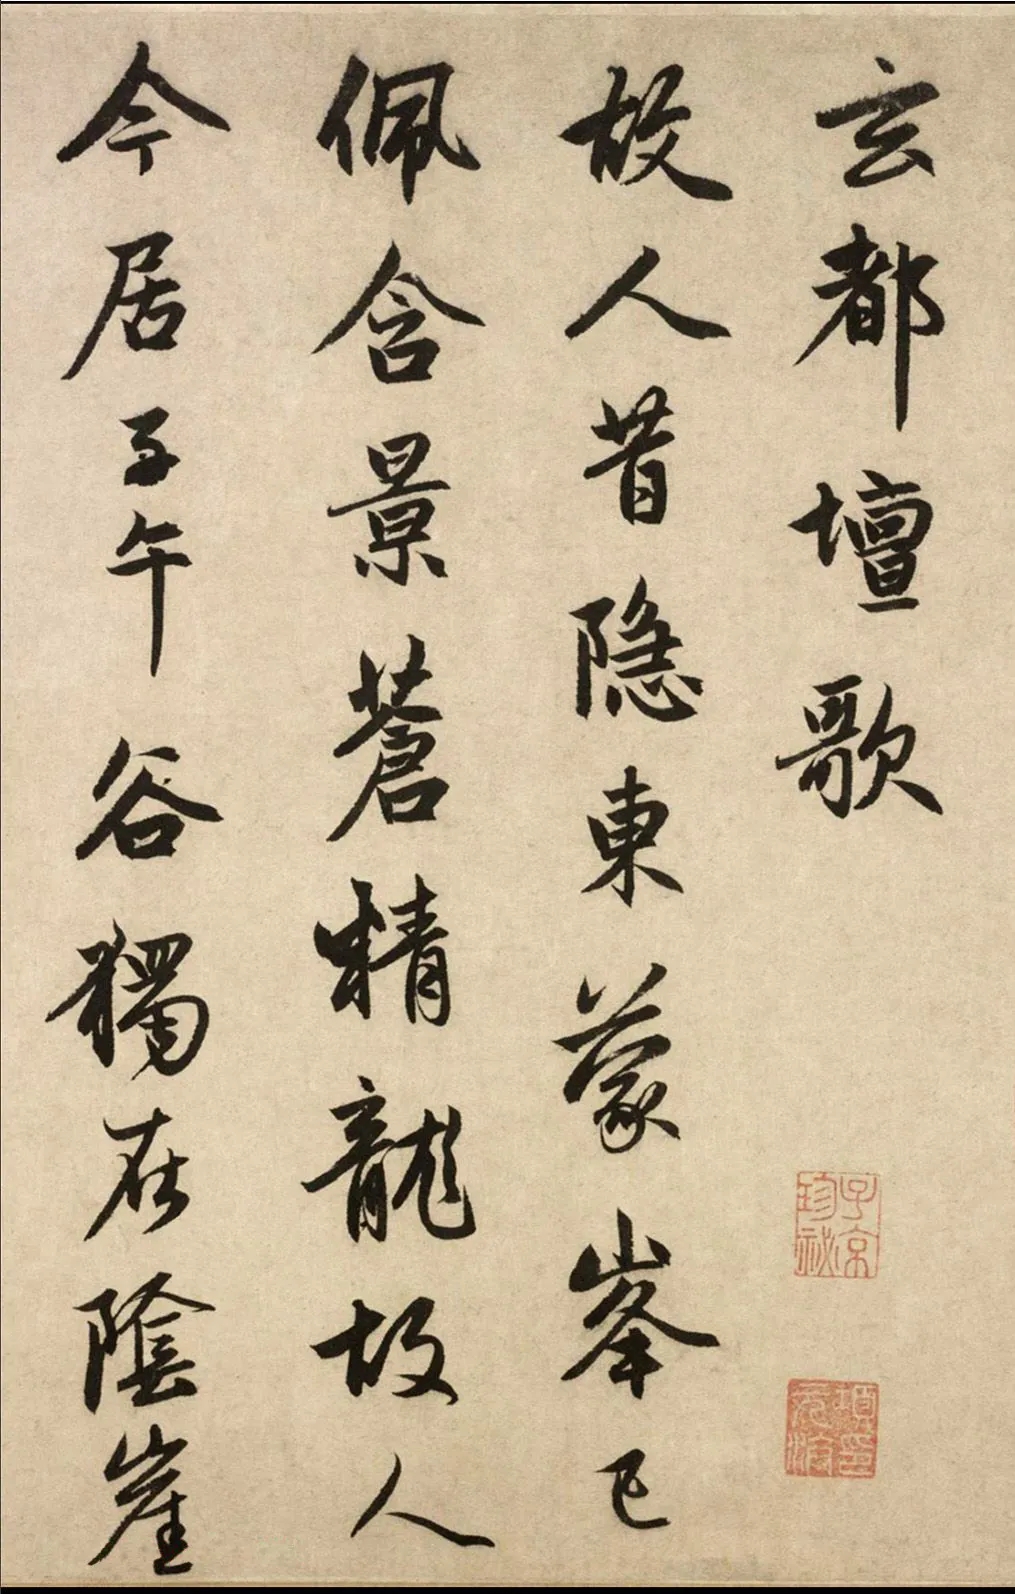 玄都壇歌
故人昔隱東蒙峯已
佩含景蒼精龍故人
今居子午谷獨在陰崖
子京珍祕
項元汴印